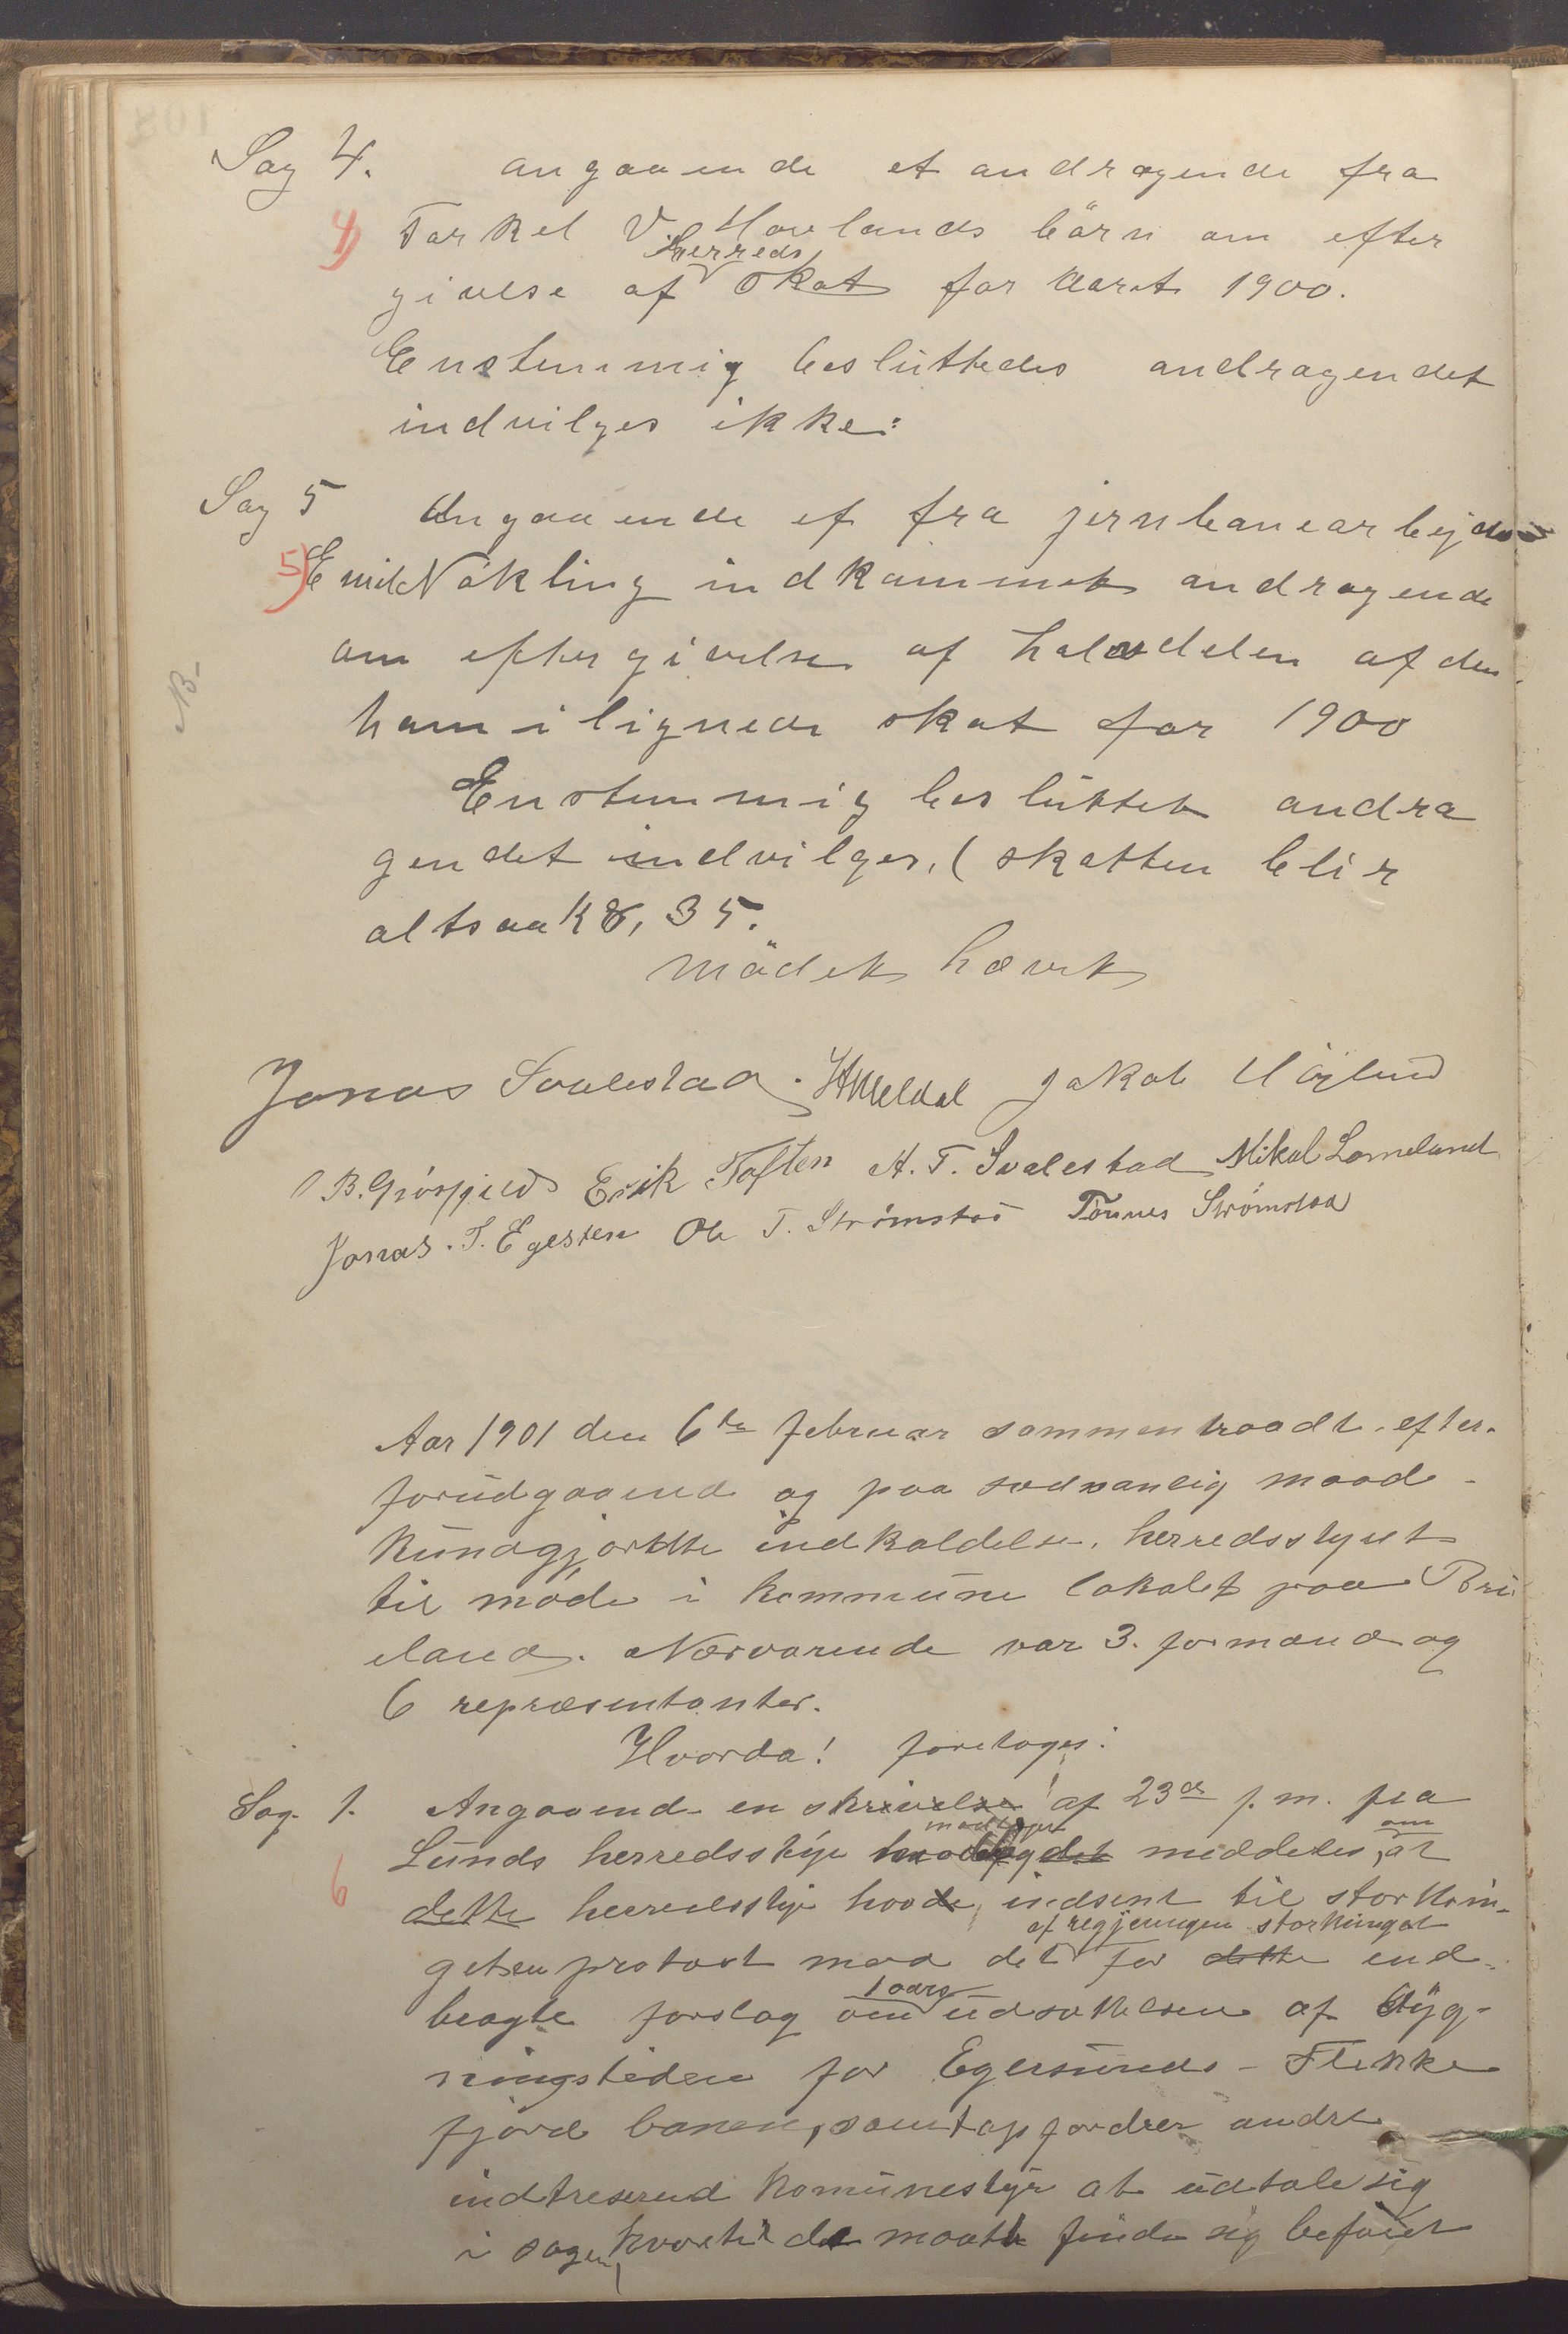 Sag 4. angaaende et andragende fra
4) Tarkel V. Hovlands börn om efter
herreds
givelse af skat for aaret 1900.
Enstemmig besluttedes andragendet
indvilges ikke:
Sag 5 Angaaende et fra jernbanearbejder
5) Emil Nökling indkommet andragende
om eftergivelse af halvdelen af den
NB
ham ilignede skat for 1900
Enstemmig besluttet andra
gendet indvilges, (skatten blir
altsaa K 8,35.
Mödet hævet
Jonas Svalestad. Jakob Höglund
Erik Toften A. T. Svalestad Mikal Lomeland
Jonas. T. Egesten Ole T. Strømstad Tönnes Strømstad
Aar 1901 den 6te februar sammentraadte efter
forudgaaende og paa sædvanlig maade
kundgjordte indkaldelse, herredsstyret
til møde i kommune lokalet paa Bru
eland. Nærværende var 3. formænd og
6 repræsentanter.
Hvorda! foretoges:
Sag. 1. Angaaend en skrivelse af 23de f. m. fra
modtaget
om
Lunds herredsstyre meddeles, at
6 dette herredsstyre havde indsent til storthin-
af regjeringen storthinget
getsen protest mod det for dette end-
1 aars
bragte forslag om udsættelsen af byg-
ningstiden for Egersunds-Flekke
fjord banen, samt opfordrer andre
indtreserend komunestyr at udtale sig
i sagen, hvortil de maatte finde sig beføiet